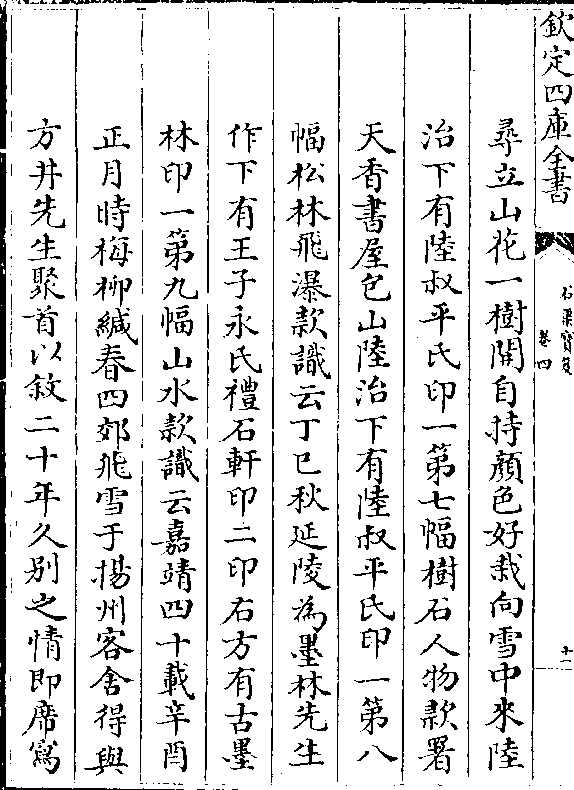 欽定四庫全書
石渠寶笈
卷四
十一
尋立山花一樹開自持顏色好栽向雪中來陸
治下有陸叔平氏印一第七幅樹石人物款署
天香書屋包山陸治下有陸叔平氏印一第八
幅松林飛瀑款識云丁巳秋延陵為墨林先生
作下有王子永氏禮石軒印二印右方有古墨
林印一第九幅山水款識云嘉靖四十載辛酉
正月時梅柳緘春四郊飛雪于揚州客舍得與
方井先生聚首以敘二十年久別之情即席寫